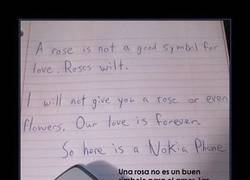 A rose is not a good symbol for
love. Roses wilt.
I will not give you a rose or even
flowers. Our love is forever.
So here is a Nokia Phone
Una rosa no es un buen